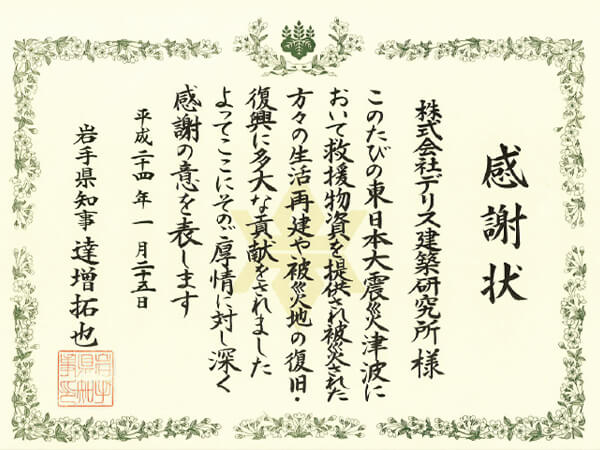 感謝状
株式会社デリス建築研究所様
このたびの東日本大震災津波に
おいて救援物資を提供され被災された
方々の生活再建や被災地の復旧・
復興に多大な貢献をされました
よってここにそのご厚情に対し深く
感謝の意を表します
平成二十四年一月二十五日
岩手県知事 達増拓也
岩手
県知
事印